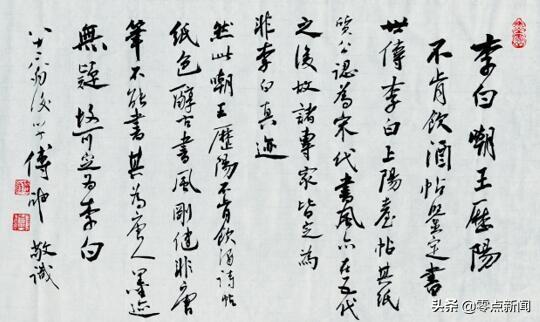 李白嘲王歷陽
不肯飲酒帖鑒定書
世傳李白上陽臺帖其紙
質公認為宋代書風亦在五代
之後故諸專家皆定為
非李白真迹
然此嘲王歷陽不肯飲酒詩帖
紙色醇古書風剛健非唐
筆不能書其為唐人墨迹
無疑故可定為李白
八十翁後学傅申敬識
头条 @零点新闻